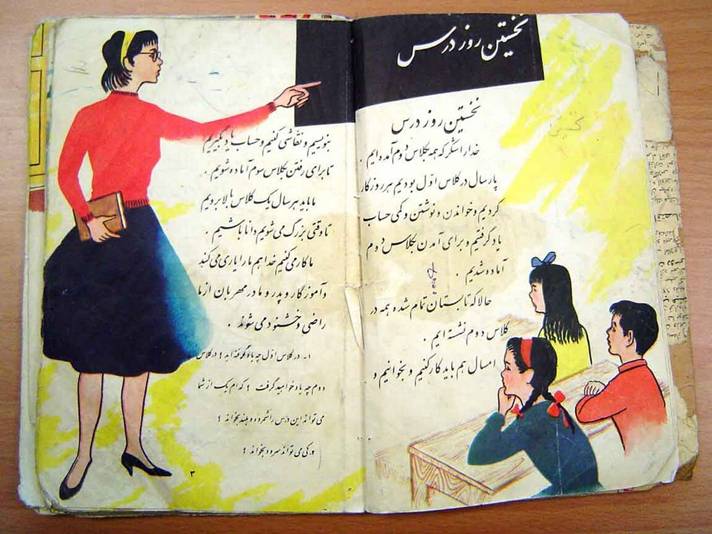 نخستین روز درس
نخستین روز درس
خدا را شکر که همه بکلاس دوم آمده ایم .
پارسال در کلاس اوّل بودیم هر روز کار
کردیم و خواندن و نوشتن و کمی حساب
یاد گرفتیم و برای آمدن بکلاس دوم
آماده شدیم .
حالا که تابستان تمام شده همه در
کلاس دوم نشسته ایم .
امسال هم باید کار کنیم و بخوانیم و
بنویسیم و نقّاشی کنیم و حساب یاد بگیریم
تا برای رفتن بکلاس سوم آماده شویم .
ما باید هر سال یک کلاس بالا برویم
تا وقتی بزرگ می شویم دانا باشیم .
ما کار می کنیم خدا هم ما را یاری می کند
و آموزگار و پدر و مادر مهربان از ما
راضی و خشنود می شوند .
۱- در کلاس اوّل چه یاد گرفته اید ؟ در کلاس
دوم چه یاد خواهید گرفت ؟ کدام یک از شما
می تواند این درس را شمرده و بلند بخواند ؟
و کی می تواند سرود بخواند ؟
۳